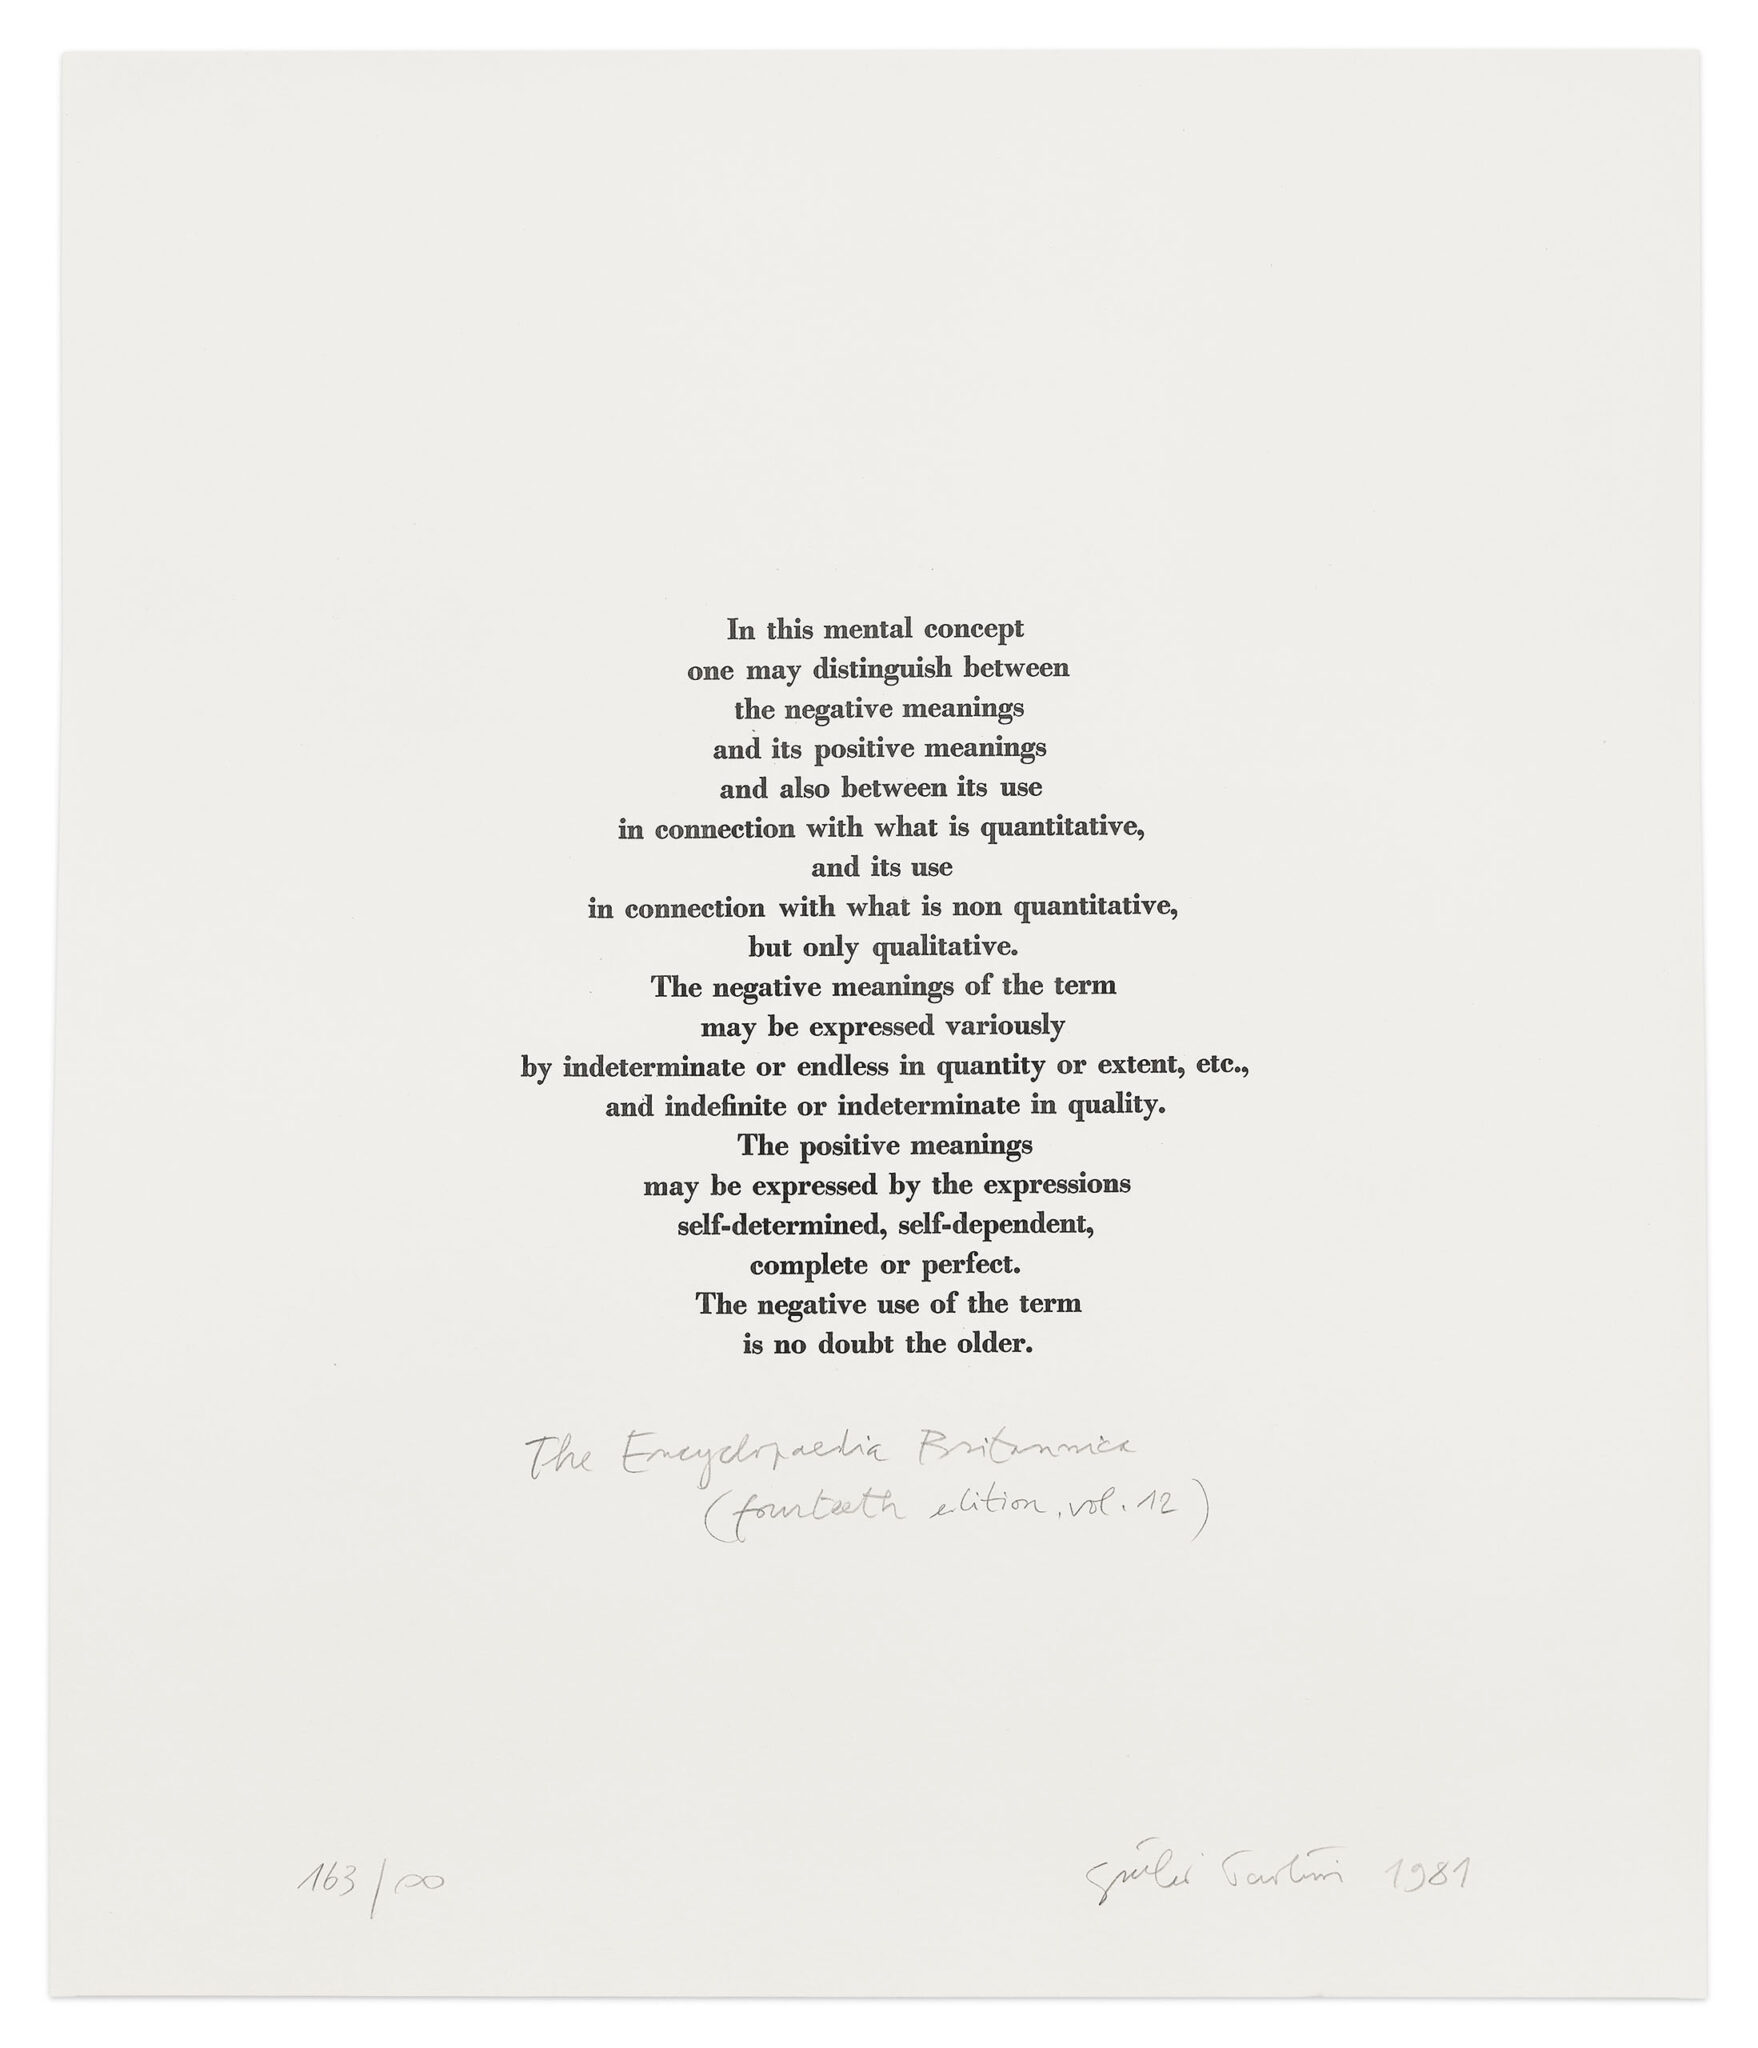 In this mental concept
one may distinguish between
the negative meanings
and its positive meanings
and also between its use
in connection with what is quantitative,
and its use
in connection with what is non quantitative,
but only qualitative.
The negative meanings of the term
may be expressed variously
by indeterminate or endless in quantity or extent, etc.,
and indefinite or indeterminate in quality.
The positive meanings
may be expressed by the expressions
self-determined, self-dependent,
complete or perfect.
The negative use of the term
is no doubt the older.
The Encyclopaedia Britannica
(fourteeth edition, vol. 12)
163/∞
1981